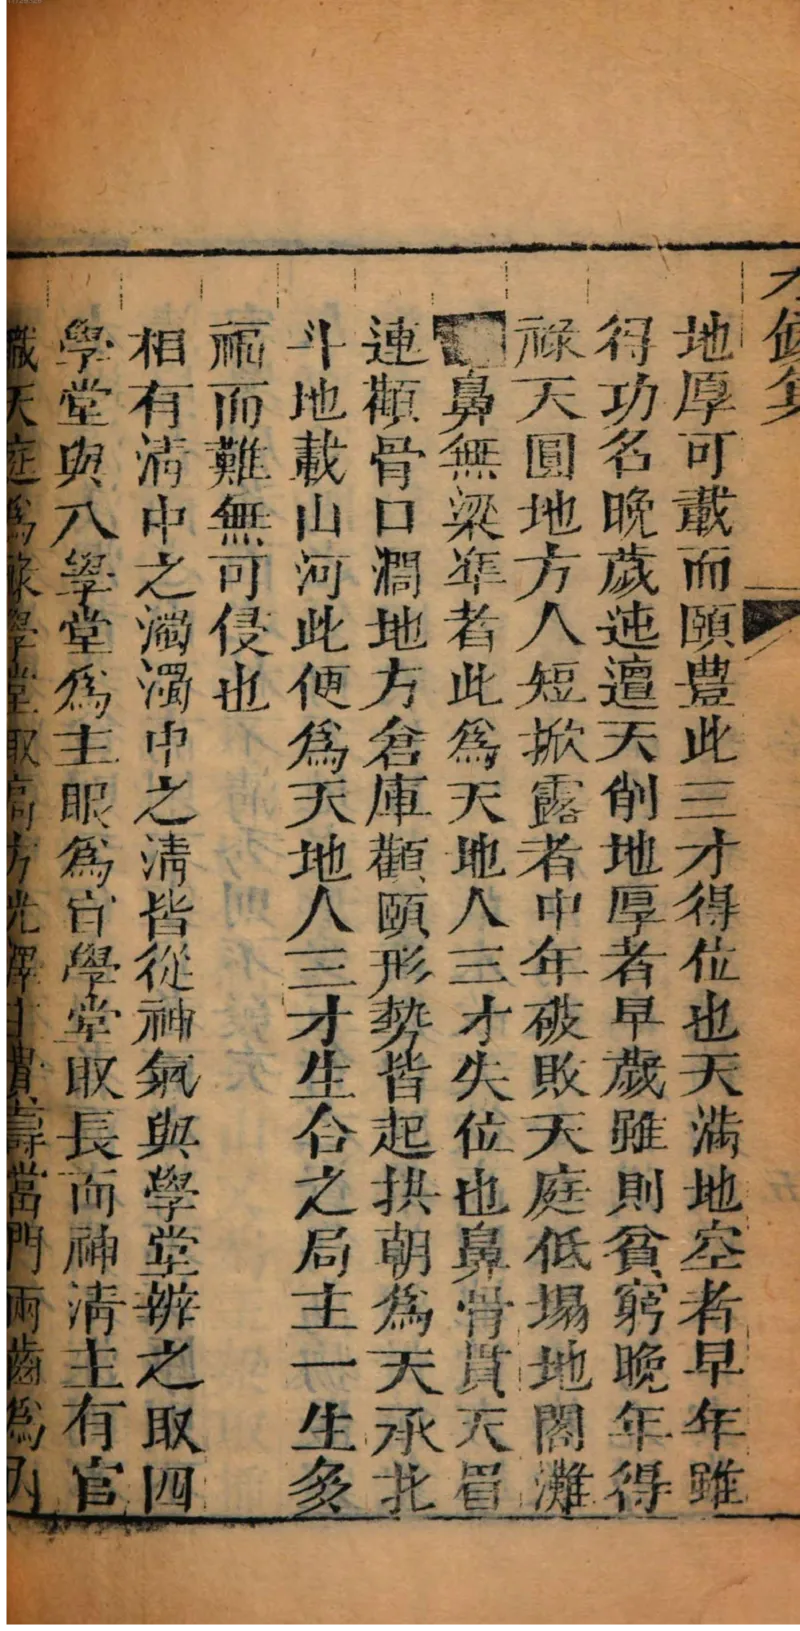 地厚可載而頤豐此三才得位也天滿地空者早年雖
得功名晚歲迍邅天削地厚者早歲雖則貧窮晚年得
祿天圓地方人短掀露者中年破敗天庭低塌地閣灘
鼻無梁準者此為天地人三才失位也鼻骨貫天眉
連顴骨口濶地方倉庫顴頤形勢皆起拱朝為天承北
斗地載山河此便為天地人三才生合之局主一生多
福而難無可侵也
相有清中之濁濁中之清皆從神氣與學堂辨之取四
學堂與八學堂為主眼為官學堂取長而神清主有官
職天庭為祿學堂取高方光澤主貴壽當門兩齒為內